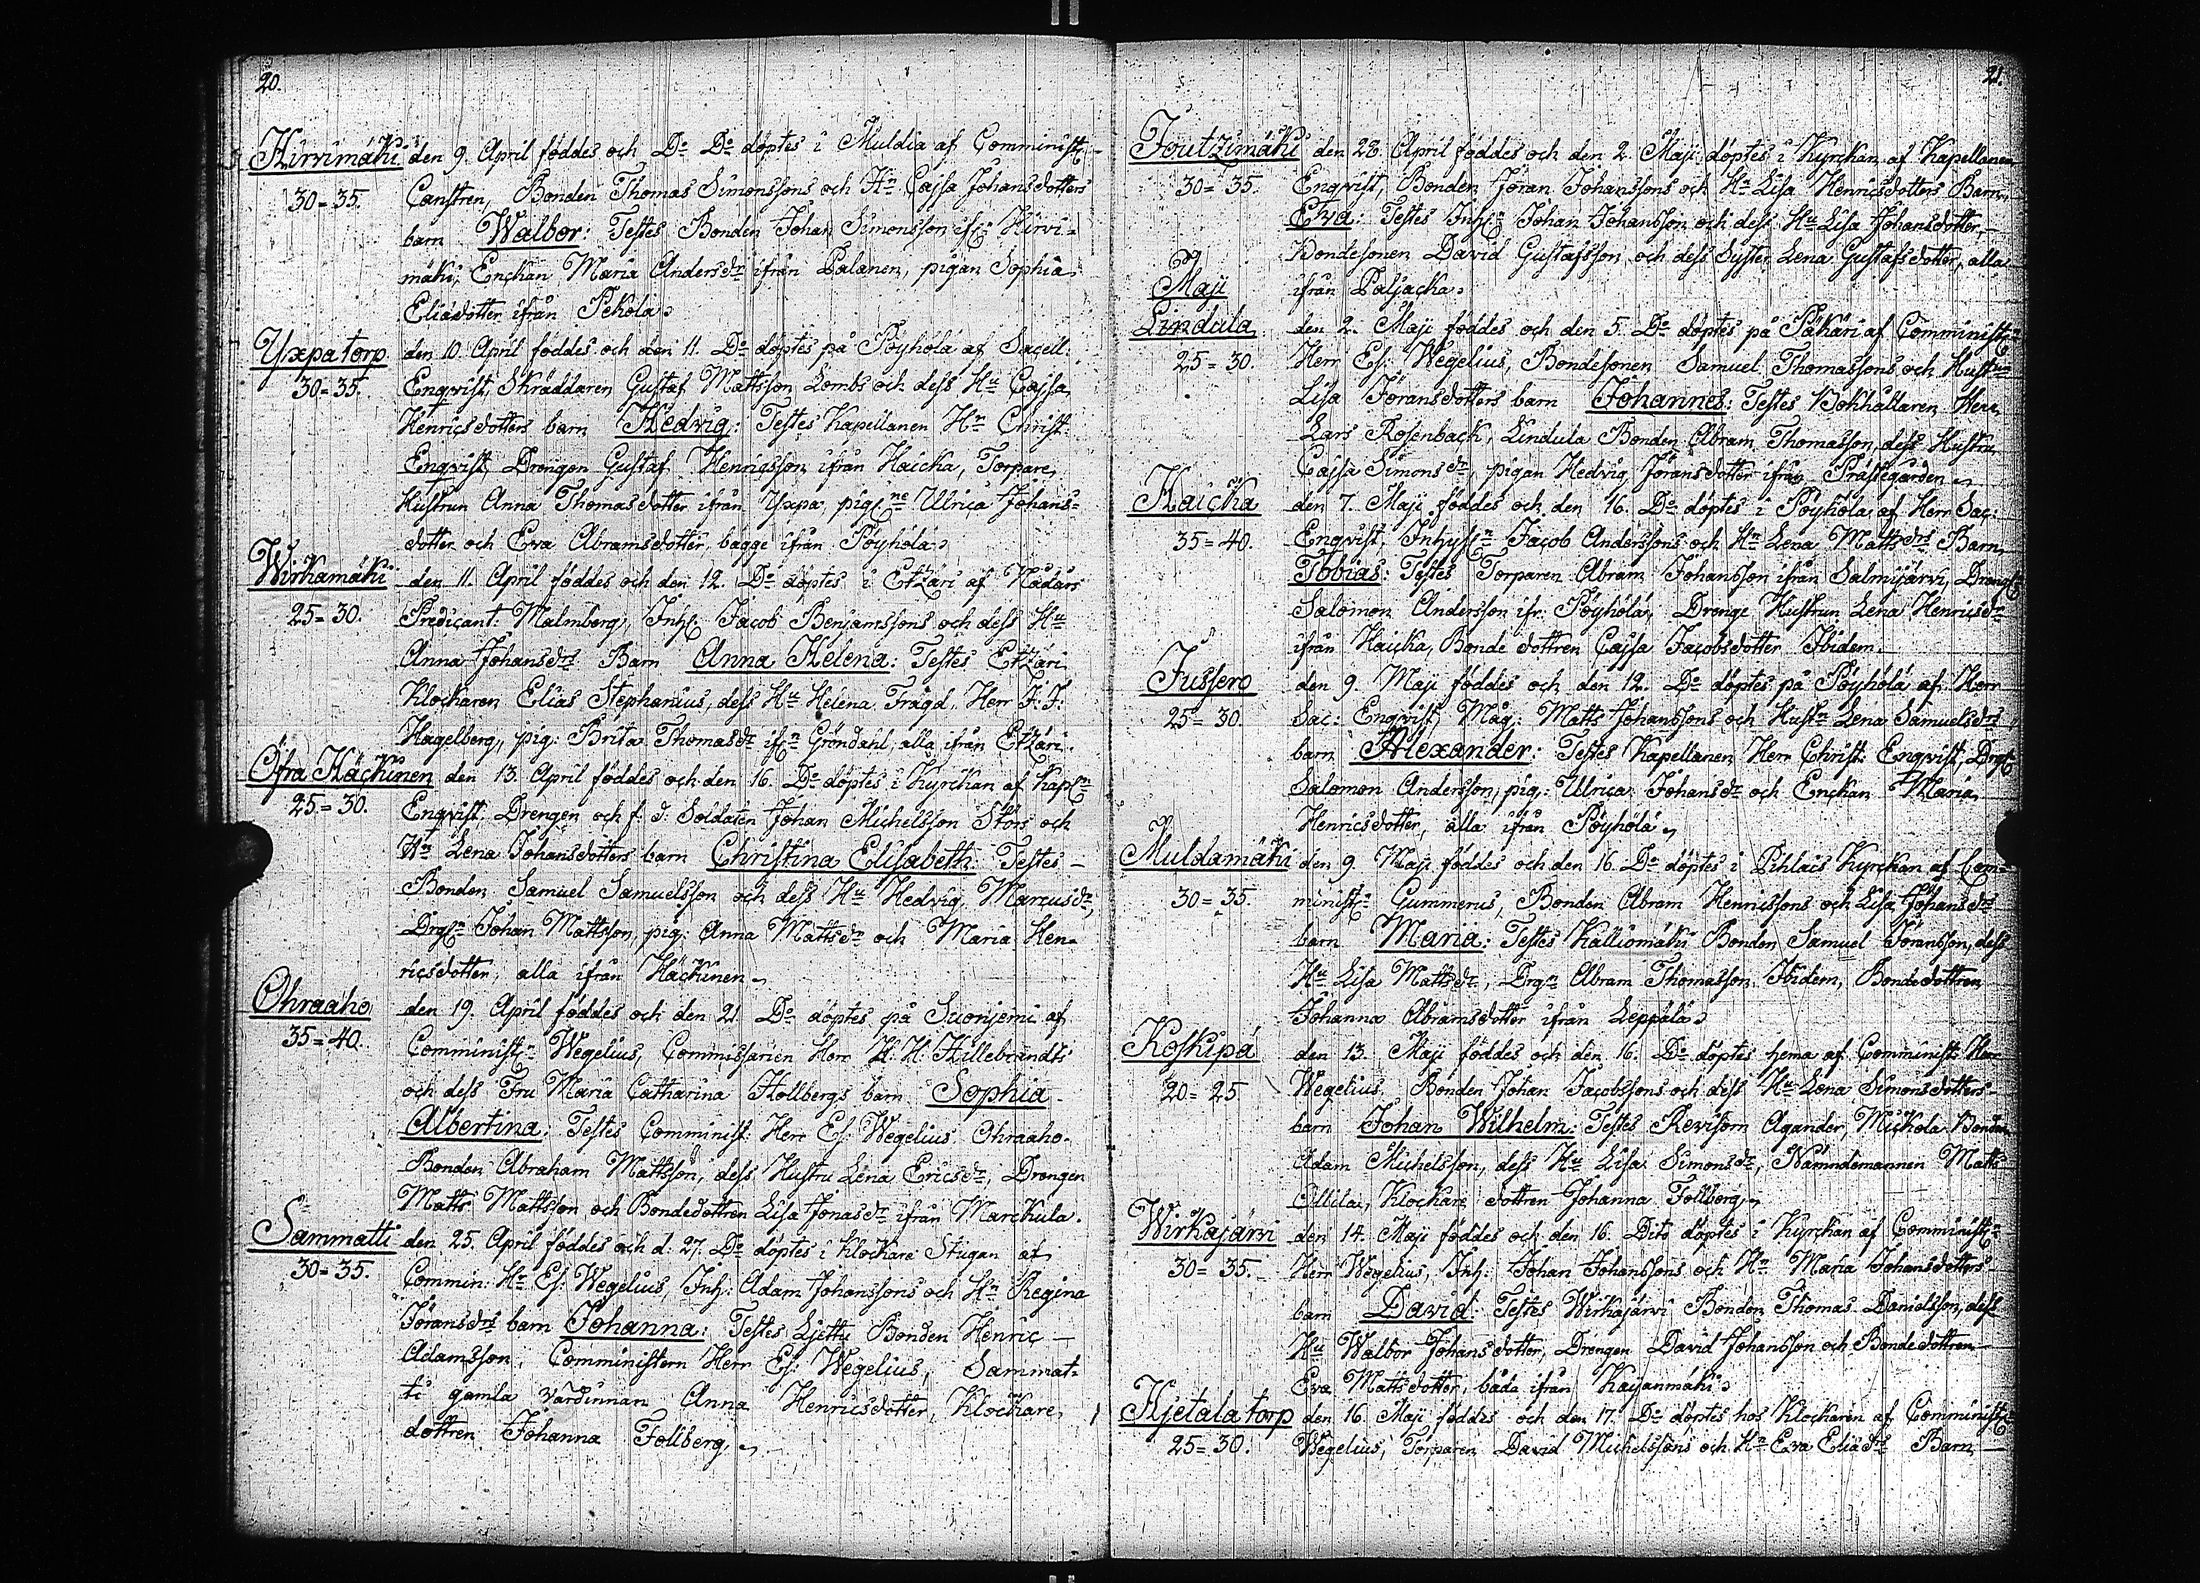 20.
Hirvimäki den 9. April föddes och Do Do döptes i Muldia af Comminist:
30=35. Canstren, Bonden Thomas Simonssons och Hn Cajsa Johansdotters
barn Walbor: Testes Bonden Johan Simonsson ifr: Hirvi=
mäki, Enckan Maria Andersdr ifrån Palanen, pigan Sophia
Eliädotter ifrån Pekola.
Yxpa torp den 10. April föddes och den 11. Do döptes på Pöyhölä af Sacell:
30=35. Enqvist, Skräddaren Gustaf Mattsson Lombs och dess Hu Cajsa
Henricsdotters barn Hedvig: Testes Kapellanen Hn Christ:
Enqvist, Drengen Gustaf Henricsson ifrån Haicka, Torpare
Hustrun Anna Thomasdotter ifrån Yxpa, pigne Ulrica Johans=
dotter och Eva Abramsdotter, bägge ifrån Pöyhölä.
Wirkamäki den 11. April föddes och den 12. Do döptes i Etzäri af Nådårs
25=30. Predicant: Malmberg, Inh: Jacob Benjamssons och dess Hu
Anna Johansdrs Barn Anna Helena: Testes Etzäri
Klockaren Elias Stephanius, dess Hu Helena Frägd, Herr J: J:
Hagelberg, pig: Brita Thomasdr ifn Gröndahl, alla ifrån Etzäri.
Öfra Häckinen den 13. April föddes och den 16. Do döptes i Kyrckan af Kapn
25=30. Enqvist, Drengen och f. d. Soldaten Johan Michelsson Stors och
Hn Lena Johansdotters barn Christina Elisabeth: Testes
Bonden Samuel Samuelsson och dess Hu Hedvig Marcusdr,
Drgn Johan Mattsson, pig: Anna Mattsdr och Maria Hen=
ricsdotter, alla ifrån Häckinen.
Ohraaho den 19. April föddes och den 21. Do döptes på Suonjemi af
35=40. Comminist: Wegelius, Commissarien Herr H: H: Hillebrandts
och dess Fru Maria Catharina Hollbergs barn Sophia
Albertina: Testes Comminist: Herr Es: Wegelius, Ohraaho
Bonden Abraham Mattsson, dess Hustru Lena Ericsdr, Drengen
Matts Mattsson och Bondedottren Lisa Jonasdr ifrån Marckula.
Sammatti den 25. April föddes och d: 27. Do döptes i Klockare Stugan af
30=35. Commin: Hr Es: Wegelius, Inh: Adam Johanssons och Hn Regina
Jöransdrs barn Johanna: Testes Ljettu Bonden Henric
Adamsson, Comministern Herr Es: Wegelius, Sammat=
ti gamla värdinnan Anna Henricsdotter, Klockare
dottren Johanna Follberg.
21.
Joutzimäki den 28. April föddes och den 2. Maji döptes i Kyrckan af Kapellanen
30=35. Enqvist, Bonden Jöran Johanssons och Hn Lisa Henricsdotters Barn
Eva: Testes Inhn Johan Johansson och dess Hu Lisa Johansdotter,
Bondesonen David Gustafsson och dess Syster Lena Gustafsdotter, alla
ifrån Paljacka.
Maji
Lindula den 2. Maji föddes och den 5. Do döptes på Päkäri af Comminist:
25=30. Herr Es: Wegelius, Bondesonen Samuel Thomassons och Hustrun
Lisa Jöransdotters barn Johannes: Testes Bokhållaren Herr
Lars Rosenback, Lindula Bonden Abram Thomasson, dess Hustru
Cajsa Simonsdr, pigan Hedvig Jöransdotter ifrån Prästegården.
Haicka den 7. Maji föddes och den 16. Do döptes i Pöyhölä af Herr Sac:
35=40. Enqvist, Inhyss Jacob Anderssons och Hn Lena Mattsdrs Barn
Tobias: Testes Torparen Abram Johansson ifrån Salmijärvi, Dreng
Salomon Andersson ifr: Pöyhölä, Drenge Hustrun Lena Henricsdr
ifrån Haicka, Bonde dottren Cajsa Jacobsdotter Ibidem.
Jussero den 9. Maji föddes och den 12. Do döptes på Pöyhölä af Herr
25=30. Sac: Enqvist, Måg: Matts Johanssons och Hustn Lena Samuelsdrs
barn Alexander: Testes Kapellanen Herr Christ: Enqvist, Drgn
Salomon Andersson, pig: Ulrica Johansdr och Enckan Maria
Henricsdotter, alla ifrån Pöyhölä.
Muldamäki den 9. Maji föddes och den 16. Do döptes i Pihlais Kyrckan af Com=
30=35. minist: Gummerus, Bonden Abram Henricssons och Lisa Johansdrs
barn Maria: Testes Kalliomäki Bonden Samuel Jöransson, dess
Hu Lisa Mattsdr, Drgn Abram Thomasson Ibidem, Bondedottren
Johanna Abramsdotter ifrån Leppälä.
Koskipä den 13. Maji föddes och den 16. Do döptes hema af Comminist: Herr
20=25 Wegelius, Bonden Johan Jacobssons och dess Hu Lena Simonsdotters
barn Johan Wilhelm: Testes Revisorn Agander, Mickola Bonden
Adam Michelsson, dess Hu Lisa Simonsdr, Nämndemannen Matts
Ollila, Klockare dottren Johanna Follberg.
Wirkajärvi den 14. Maji föddes och den 16. Dito döptes i Kyrckan af Comminist:
30=35. Herr Wegelius, Inh: Johan Johanssons och Hn Maria Johansdotters
barn David: Testes Wirkajärvi Bonden Thomas Danielsson, dess
Hu Walbor Johansdotter, Drengen David Johansson och Bondedottren
Eva Mattsdotter, båda ifrån Kajanmäki.
Hjetala torp den 16. Maji föddes och den 17. Do döptes hos Klockaren af Comminist:
25=30. Wegelius, Torparen David Michelssons och Hn Eva Eliädrs Barn